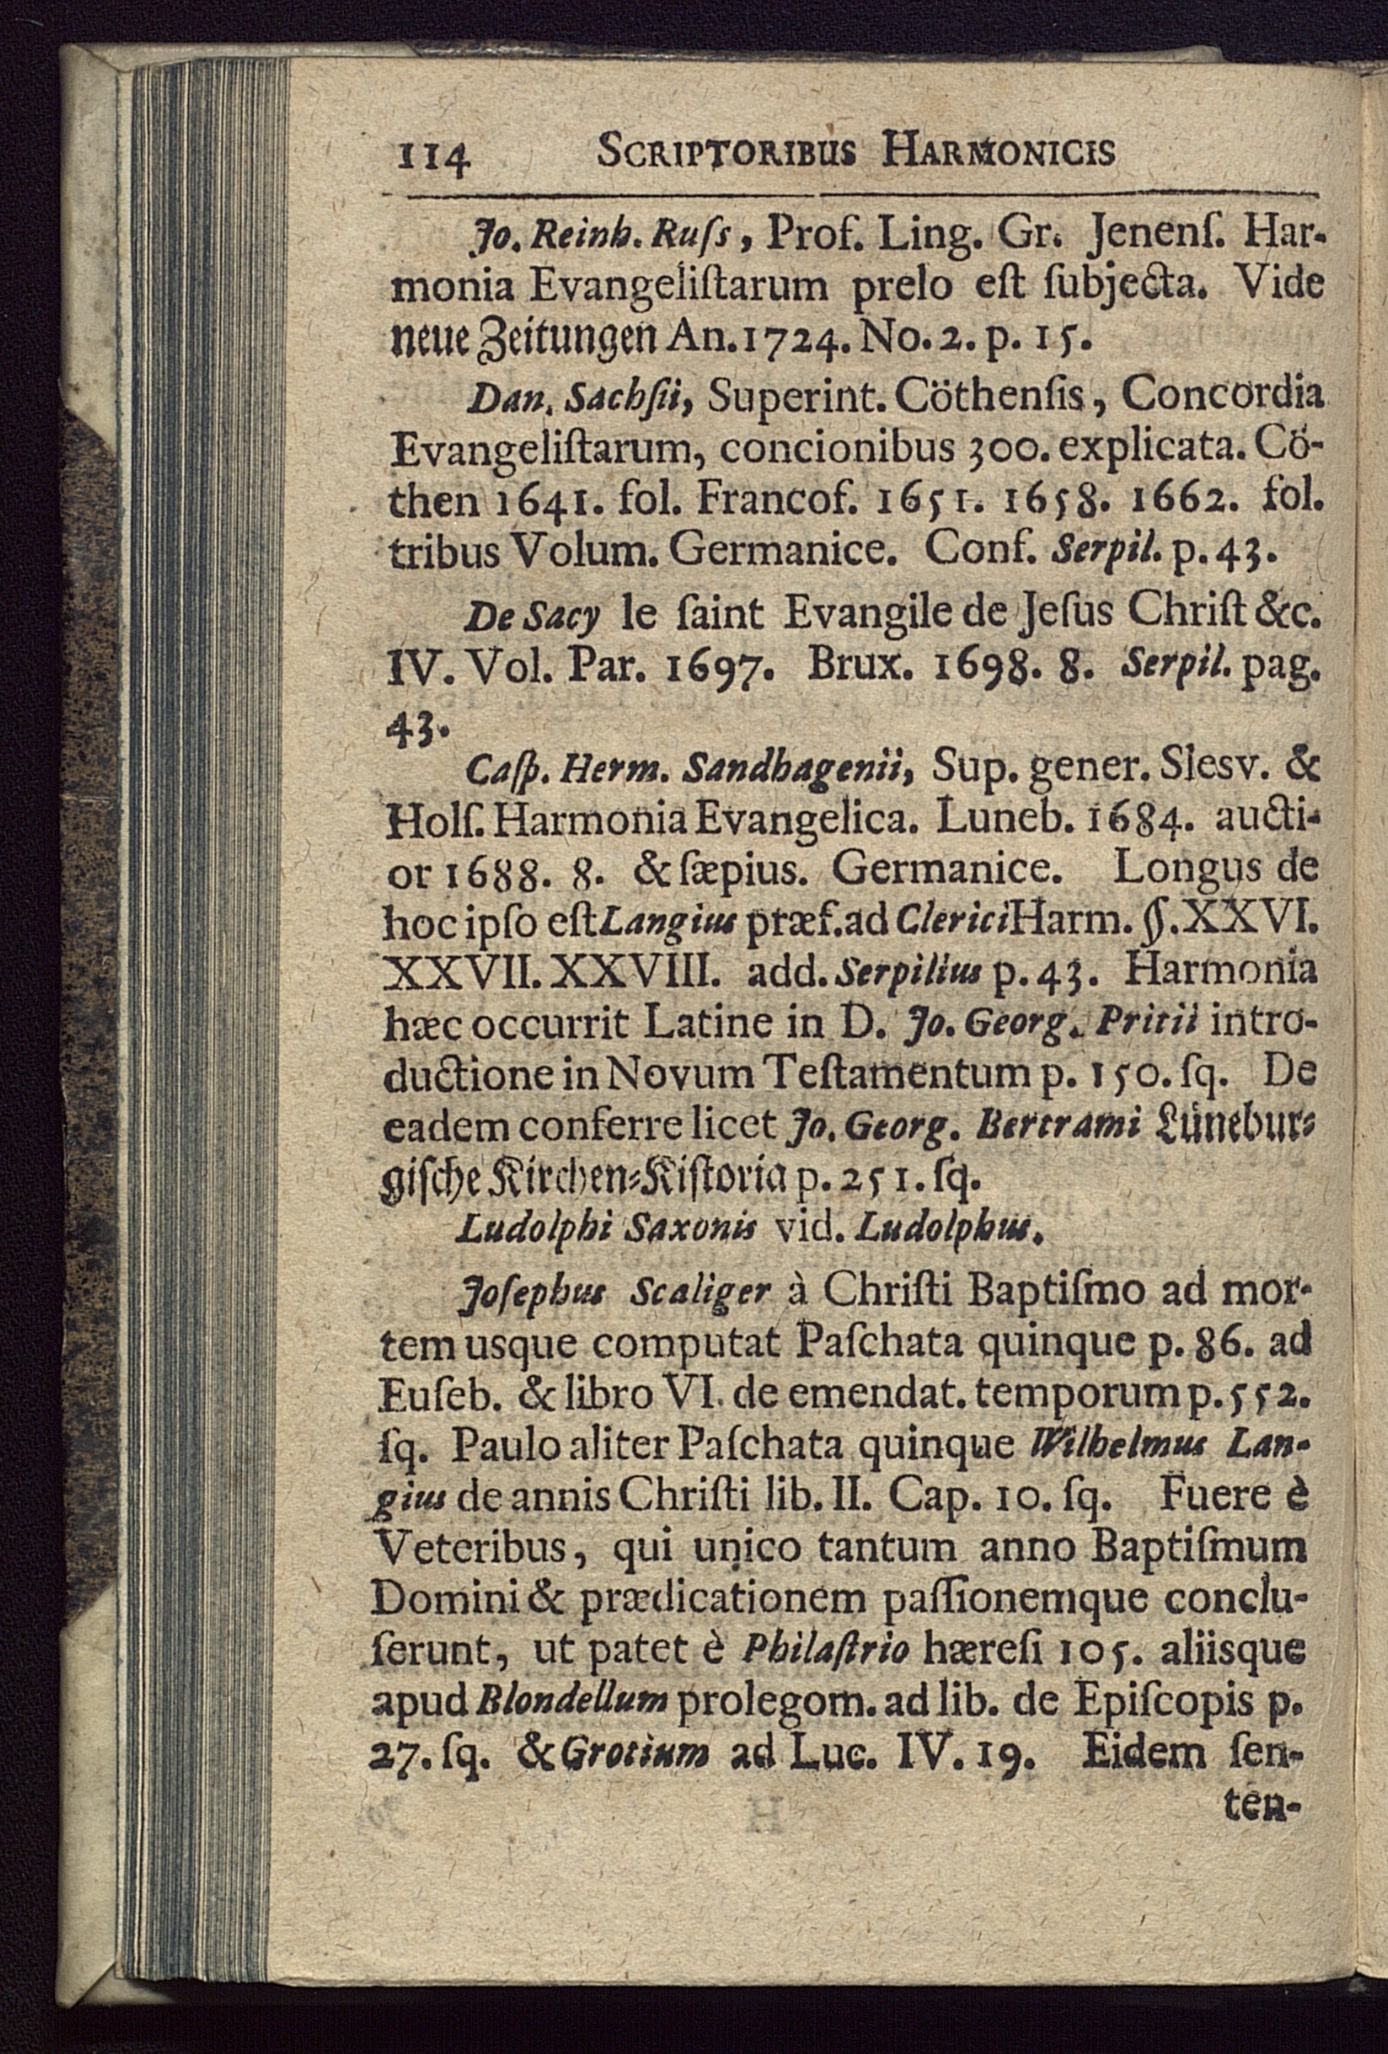 114 SCRIPTORIBUS HARMONICIS
Jo. Reinh. Ruſs, Prof. Ling. Gr. Jenenſ. Har-
monia Evangeliſtarum prelo eſt ſubjecta. Vide
neue Zeitungen An. 1724. No. 2. p. 15.
Dan. Sachſii, Superint. Cöthenſis, Concordia
Evangeliſtarum, concionibus 300. explicata. Cö-
then 1641. fol. Francof. 1651. 1658. 1662. fol.
tribus Volum. Germanice. Conf. Serpil. p. 43.
De Sacy le ſaint Evangile de Jeſus Chriſt &c.
IV. Vol. Par. 1697. Brux. 1698. 8. Serpil. pag.
43.
Caſp. Herm. Sandhagenii, Sup. gener. Slesv. &
Holſ. Harmonia Evangelica. Luneb. 1684. aucti-
or 1688. 8. & ſæpius. Germanice. Longus de
hoc ipſo eſt Langius præf. ad Clerici Harm. §. XXVI.
XXVII. XXVIII. add. Serpilius p. 43. Harmonia
hæc occurrit Latine in D. Jo. Georg. Pritii intro-
ductione in Novum Teſtamentum p. 150. ſq. De
eadem conferre licet Jo. Georg. Bertrami Lünebur-
giſche Kirchen-Hiſtoria p. 251. ſq.
Ludolphi Saxonis vid. Ludolphus.
Joſephus Scaliger à Chriſti Baptiſmo ad mor-
tem usque computat Paſchata quinque p. 86. ad
Euſeb. & libro VI. de emendat. temporum p. 552.
ſq. Paulo aliter Paſchata quinque Wilhelmus Lan-
gius de annis Chriſti lib. II. Cap. 10. ſq. Fuere è
Veteribus, qui unico tantum anno Baptiſmum
Domini & prædicationem paſſionemque conclu-
ſerunt, ut patet è Philaſtrio hæreſi 105. aliisque
apud Blondellum prolegom. ad lib. de Epiſcopis p.
27. ſq. & Grotium ad Luc. IV. 19. Eidem ſen-
ten-